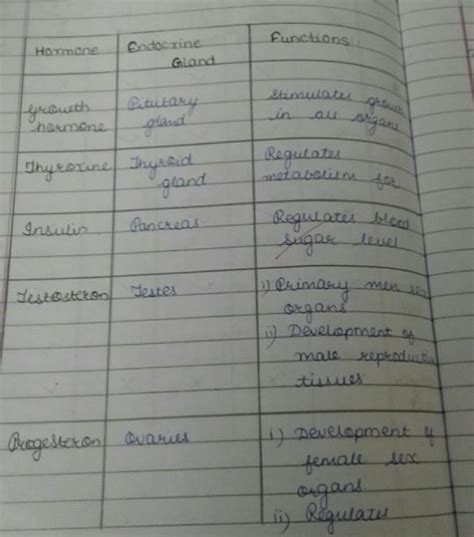 Hormone Endocrine Functions
Gland
Growth Pitutary Stimulates growth
hormone gland in all organs
Thyroxine Thyroid Regulates
gland metabolism for
Insulin Pancreas Regulates blood
sugar level
Testosteron Testes i) Primary men sex
organs
ii) Development of
male reproductive
tissues
Progesteron Ovaries i) Development of
female sex
organs
ii) Regulates